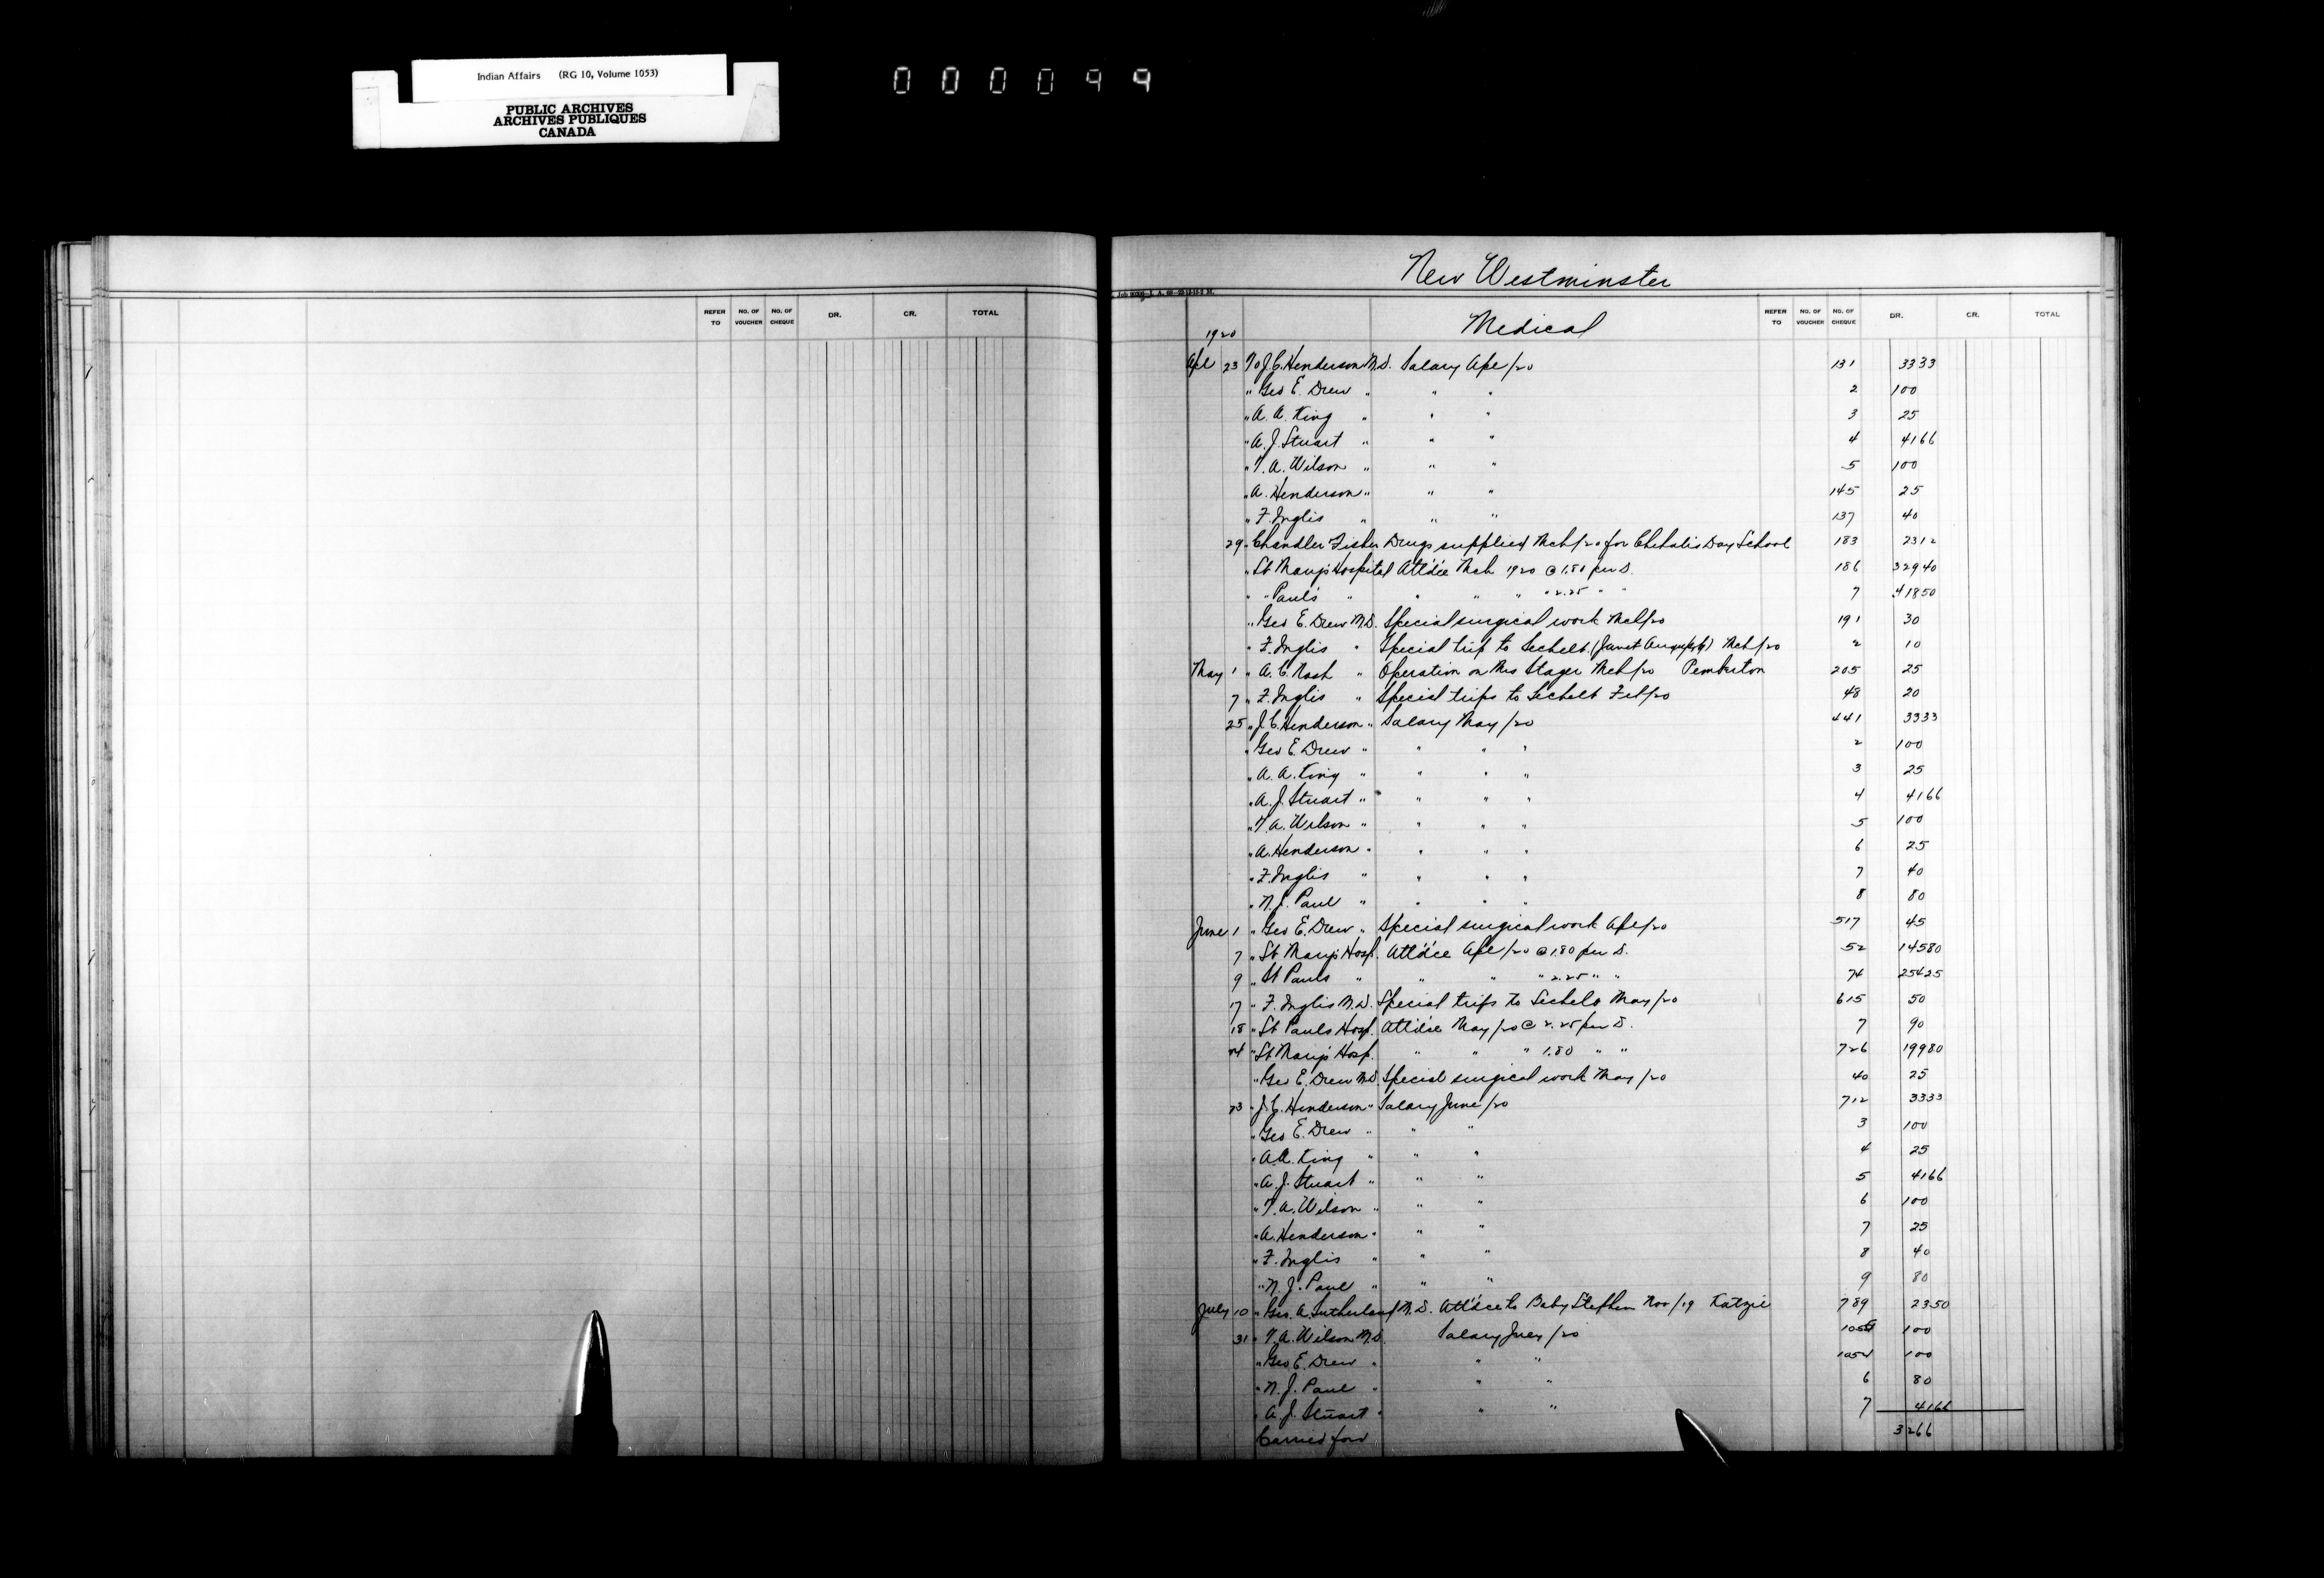 Indian Affairs (RG 10, Volume 1053)
PUBLIC ARCHIVES
ARCHIVES PUBLIQUES
CANADA
000099
REFER TO NO. OF VOUCHER NO. OF CHEQUE DR. CR. TOTAL
New Westminster
Medical
REFER TO NO. OF VOUCHER NO. OF CHEQUE DR. CR. TOTAL
1920
Apl 23 To J.C. Henderson M.D. Salary Apl/20 131 3333
" Geo E. Drew " " " 2 100
" A. A. King " " " 3 25
" A. J. Stuart " " " 4 4166
" T. A. Wilson " " " 5 100
" A. Henderson " " " 145 25
" F. Inglis " " " 137 40
29 " Chandler Fisher Drugs supplied Mch/20 for Chehalis Day School 183 2312
" St Mary's Hospital Att'd'ce Mch 1920 @ 1.80 per D. 186 32940
" " Paul's " " " " " 2.25 " " 7 41850
" Geo E. Drew M.D. Special surgical work Mch/20 191 30
" F. Inglis " Special trip to Sechelt (Janet) Mch/20 2 10
May 1 " A. C. Nash " Operation on Mrs Stager Mch/20 Pemberton 205 25
7 " F. Inglis " Special trips to Sechelt Feb/20 48 20
25 " J. C. Henderson " Salary May/20 441 3333
" Geo E. Drew " " " " 2 100
" A. A. King " " " " 3 25
" A. J. Stuart " " " " 4 4166
" T. A. Wilson " " " " 5 100
" A. Henderson " " " " 6 25
" F. Inglis " " " " 7 40
" N. J. Paul " " " " 8 80
June 1 " Geo E. Drew " Special surgical work Apl/20 517 45
7 " St Mary's Hosp. Att'd'ce Apl/20 @ 1.80 per D. 52 14580
9 " St Pauls " " " " 2.25 " " 74 25425
17 " F. Inglis M.D. Special trips to Sechelt May/20 615 50
18 " St Pauls Hosp. Att'd'ce May/20 @ 2.25 per D. 7 90
24 " St Mary's Hosp. " " " 1.80 " " 726 19980
" Geo E. Drew M.D. Special surgical work May/20 40 25
23 " J. C. Henderson " Salary June/20 712 3333
" Geo E. Drew " " " 3 100
" A. A. King " " " 4 25
" A. J. Stuart " " " 5 4166
" T. A. Wilson " " " 6 100
" A. Henderson " " " 7 25
" F. Inglis " " " 8 40
" N. J. Paul " " " 9 80
July 10 " Geo. A. Sutherland M.D. Att'd'ce to Baby Stephen Nov/19 Katzie 789 2350
31 " T. A. Wilson M.D. Salary July/20 100
" Geo E. Drew " " " 1054 100
" N. J. Paul " " " 6 80
" A. J. Stuart " " " 7 4166
Carried forw 3266